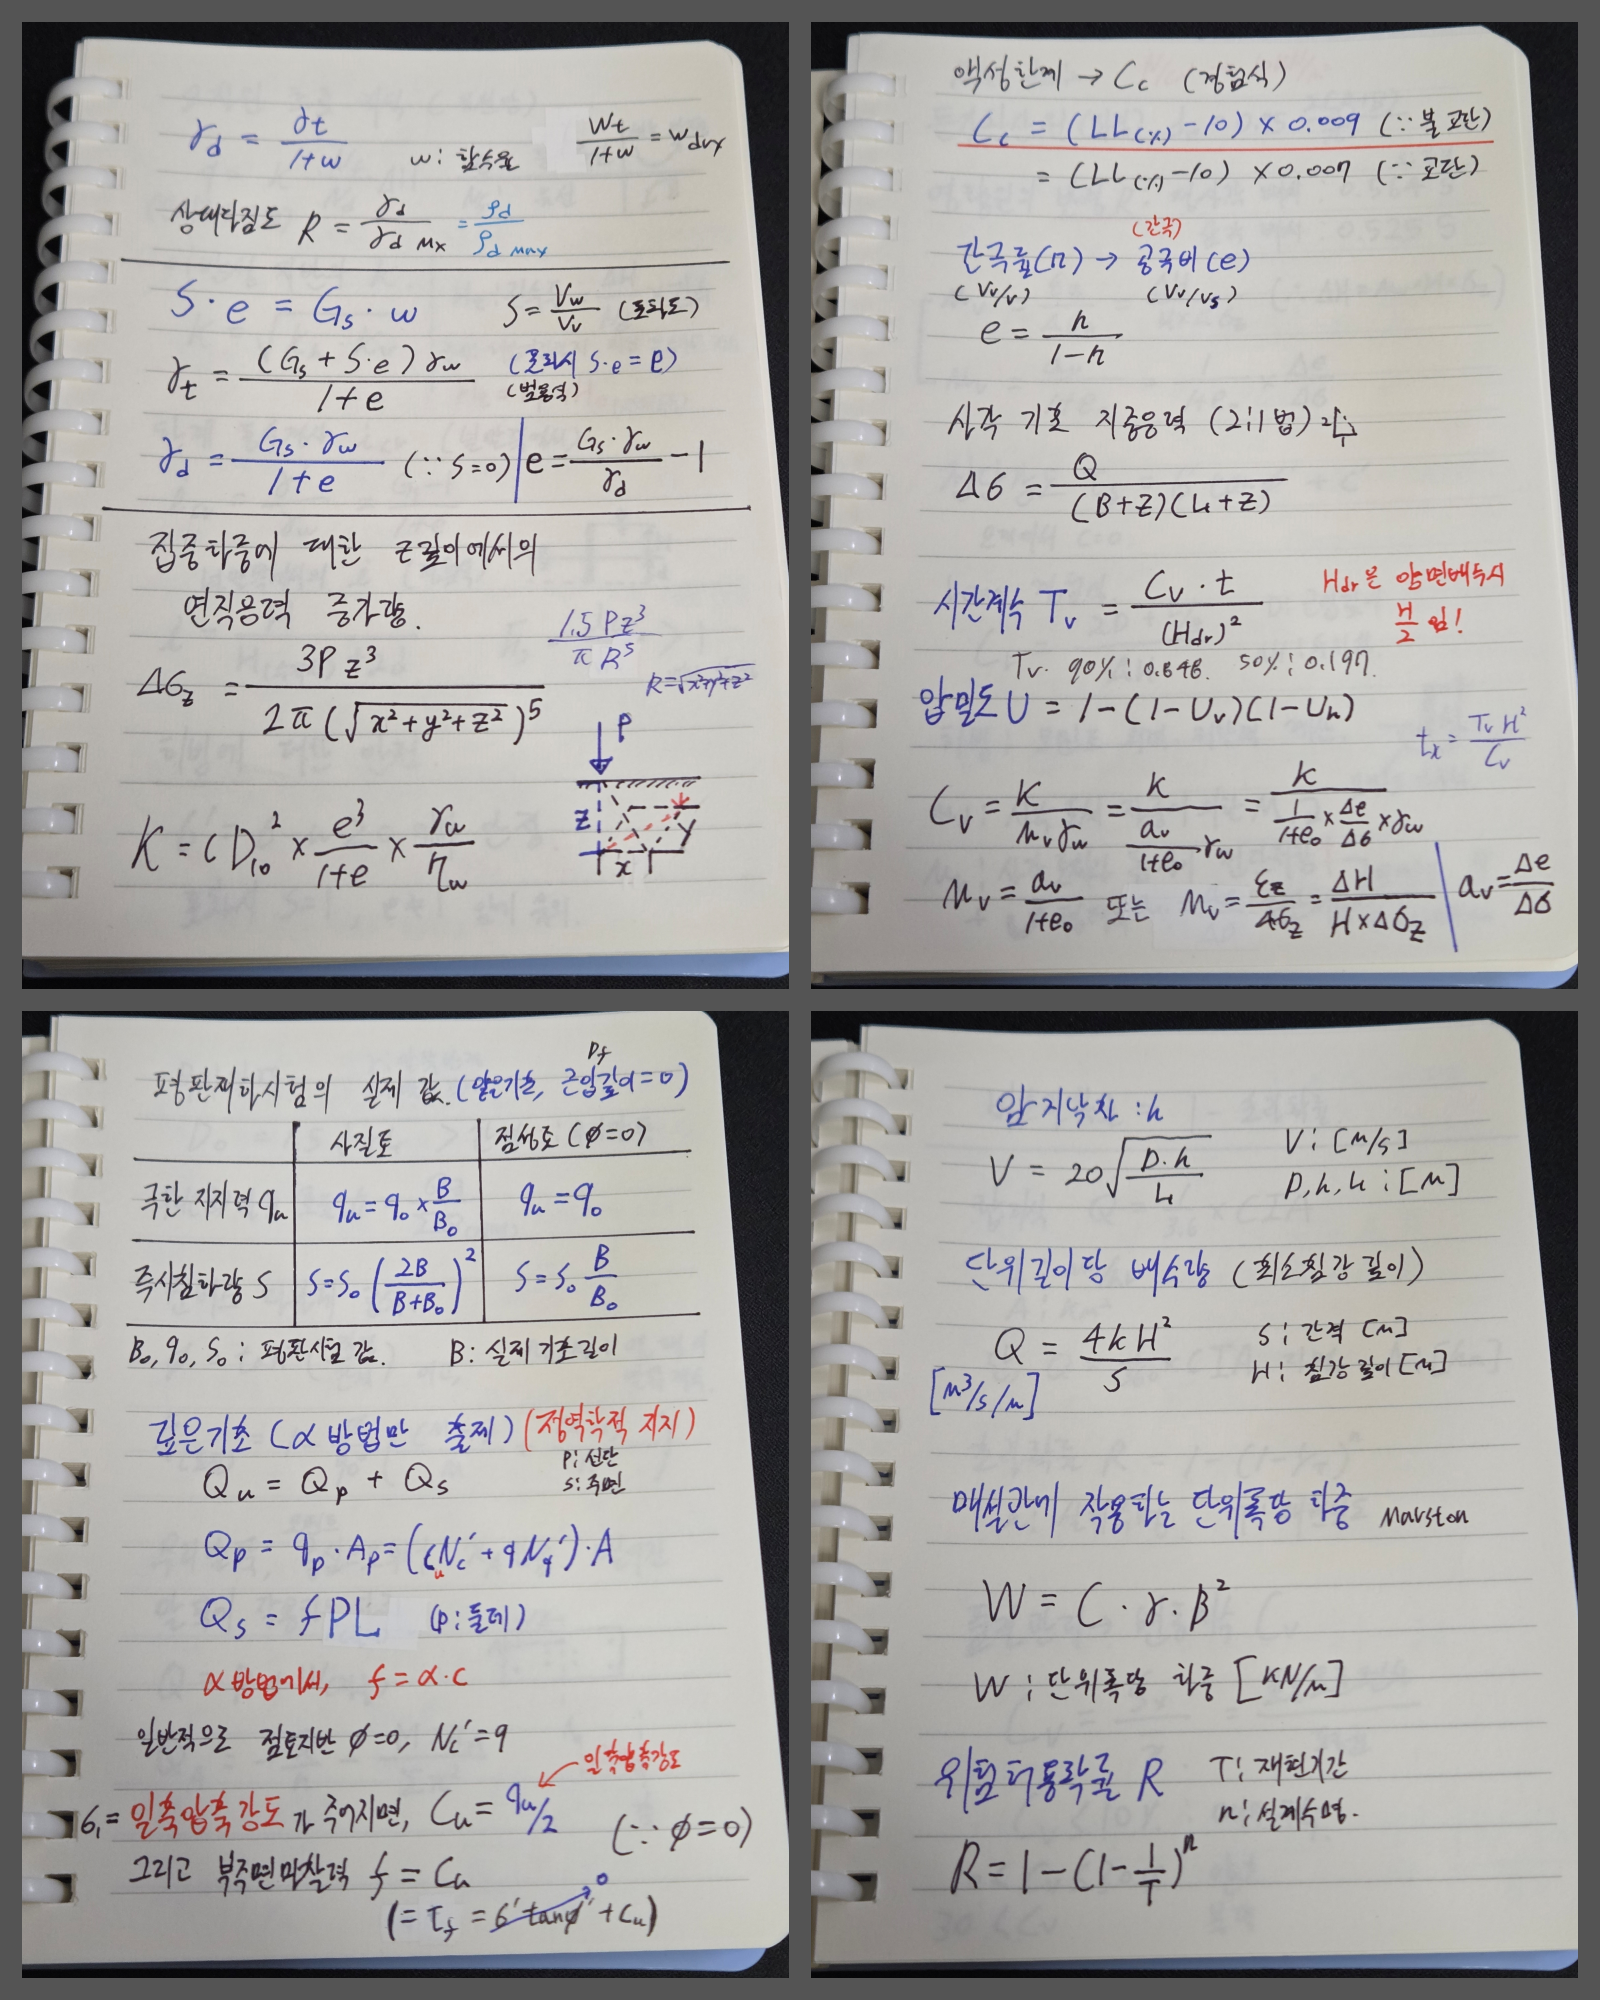 γd = γt / 1+w
w: 함수율
Wt / 1+w = wdry
상대다짐도 R = γd / γd max = ρd / ρd max
S·e = Gs·w
S = Vw / Vv (포화도)
γt = (Gs + S·e) γw / 1+e
(포화시 S·e = e)
γd = Gs·γw / 1+e (∵ S=0)
e = Gs·γw / γd - 1
집중하중에 대한 z깊이에서의
연직응력 증가량.
1.5 P z³ / π R⁵
R = √x²+y²+z²
Δσz = 3P z³ / 2π (√x²+y²+z²)⁵
P
z
x
y
K = C D10² × e³ / 1+e × γw / ηw
액성한계 → Cc (경험식)
Cc = (LL(%) - 10) × 0.009 (∵ 불교란)
= (LL(%) - 10) × 0.007 (∵ 교란)
(간극)
간극률(n) → 공극비(e)
(Vv/V) (Vv/Vs)
e = n / 1-n
사각 기초 지중응력 (2:1법)
Δσ = Q / (B+Z)(L+Z)
시간계수 Tv = Cv·t / (Hdr)²
Hdr은 양면배수시
H/2 임!
Tv. 90%: 0.848. 50%: 0.197.
압밀도 U = 1-(1-Uv)(1-Uh)
tx = Tv H² / Cv
Cv = K / mv γw = K / (av / 1+e0) γw = K / (1 / 1+e0 × Δe / Δσ × γw)
mv = av / 1+e0 또는 mv = εz / Δσz = ΔH / H×Δσz
av = Δe / Δσ
Df
평판재하시험의 실제 값. (얕은기초, 근입깊이=0)
사질토 점성토 (ø=0)
극한 지지력 qu qu = q0 × B / B0 qu = q0
즉시침하량 S S = S0 (2B / B+B0)² S = S0 B / B0
B0, q0, S0 : 평판시험 값. B: 실제 기초길이
깊은기초 (α 방법만 출제) (정역학적 지지)
Qu = Qp + Qs
P: 선단
S: 주면
Qp = qp·Ap = (cuNc' + qNq')·A
Qs = fPL (P: 둘레)
α 방법에서, f = α·c
일반적으로 점토지반 ø=0, Nc'=9
일축압축강도
σ1 = 일축압축강도가 주어지면, Cu = qu/2
(∵ ø=0)
그리고 부주면마찰력 f = Cu
0
(= τf = σ'tanø' + Cu)
암지낙차 : h
V = 20 √D·h / L
V: [m/s]
D, h, L : [m]
단위길이당 배수량 (최소침강 깊이)
Q = 4kH² / S
[m³/s/m]
S: 간격 [m]
H: 침강 깊이 [m]
매설관에 작용하는 단위폭당 하중 Marston
W = C·γ·B²
W : 단위폭당 하중 [kN/m]
위험허용확률 R
T: 재현기간
n: 설계수명.
R = 1-(1-1/T)ⁿ